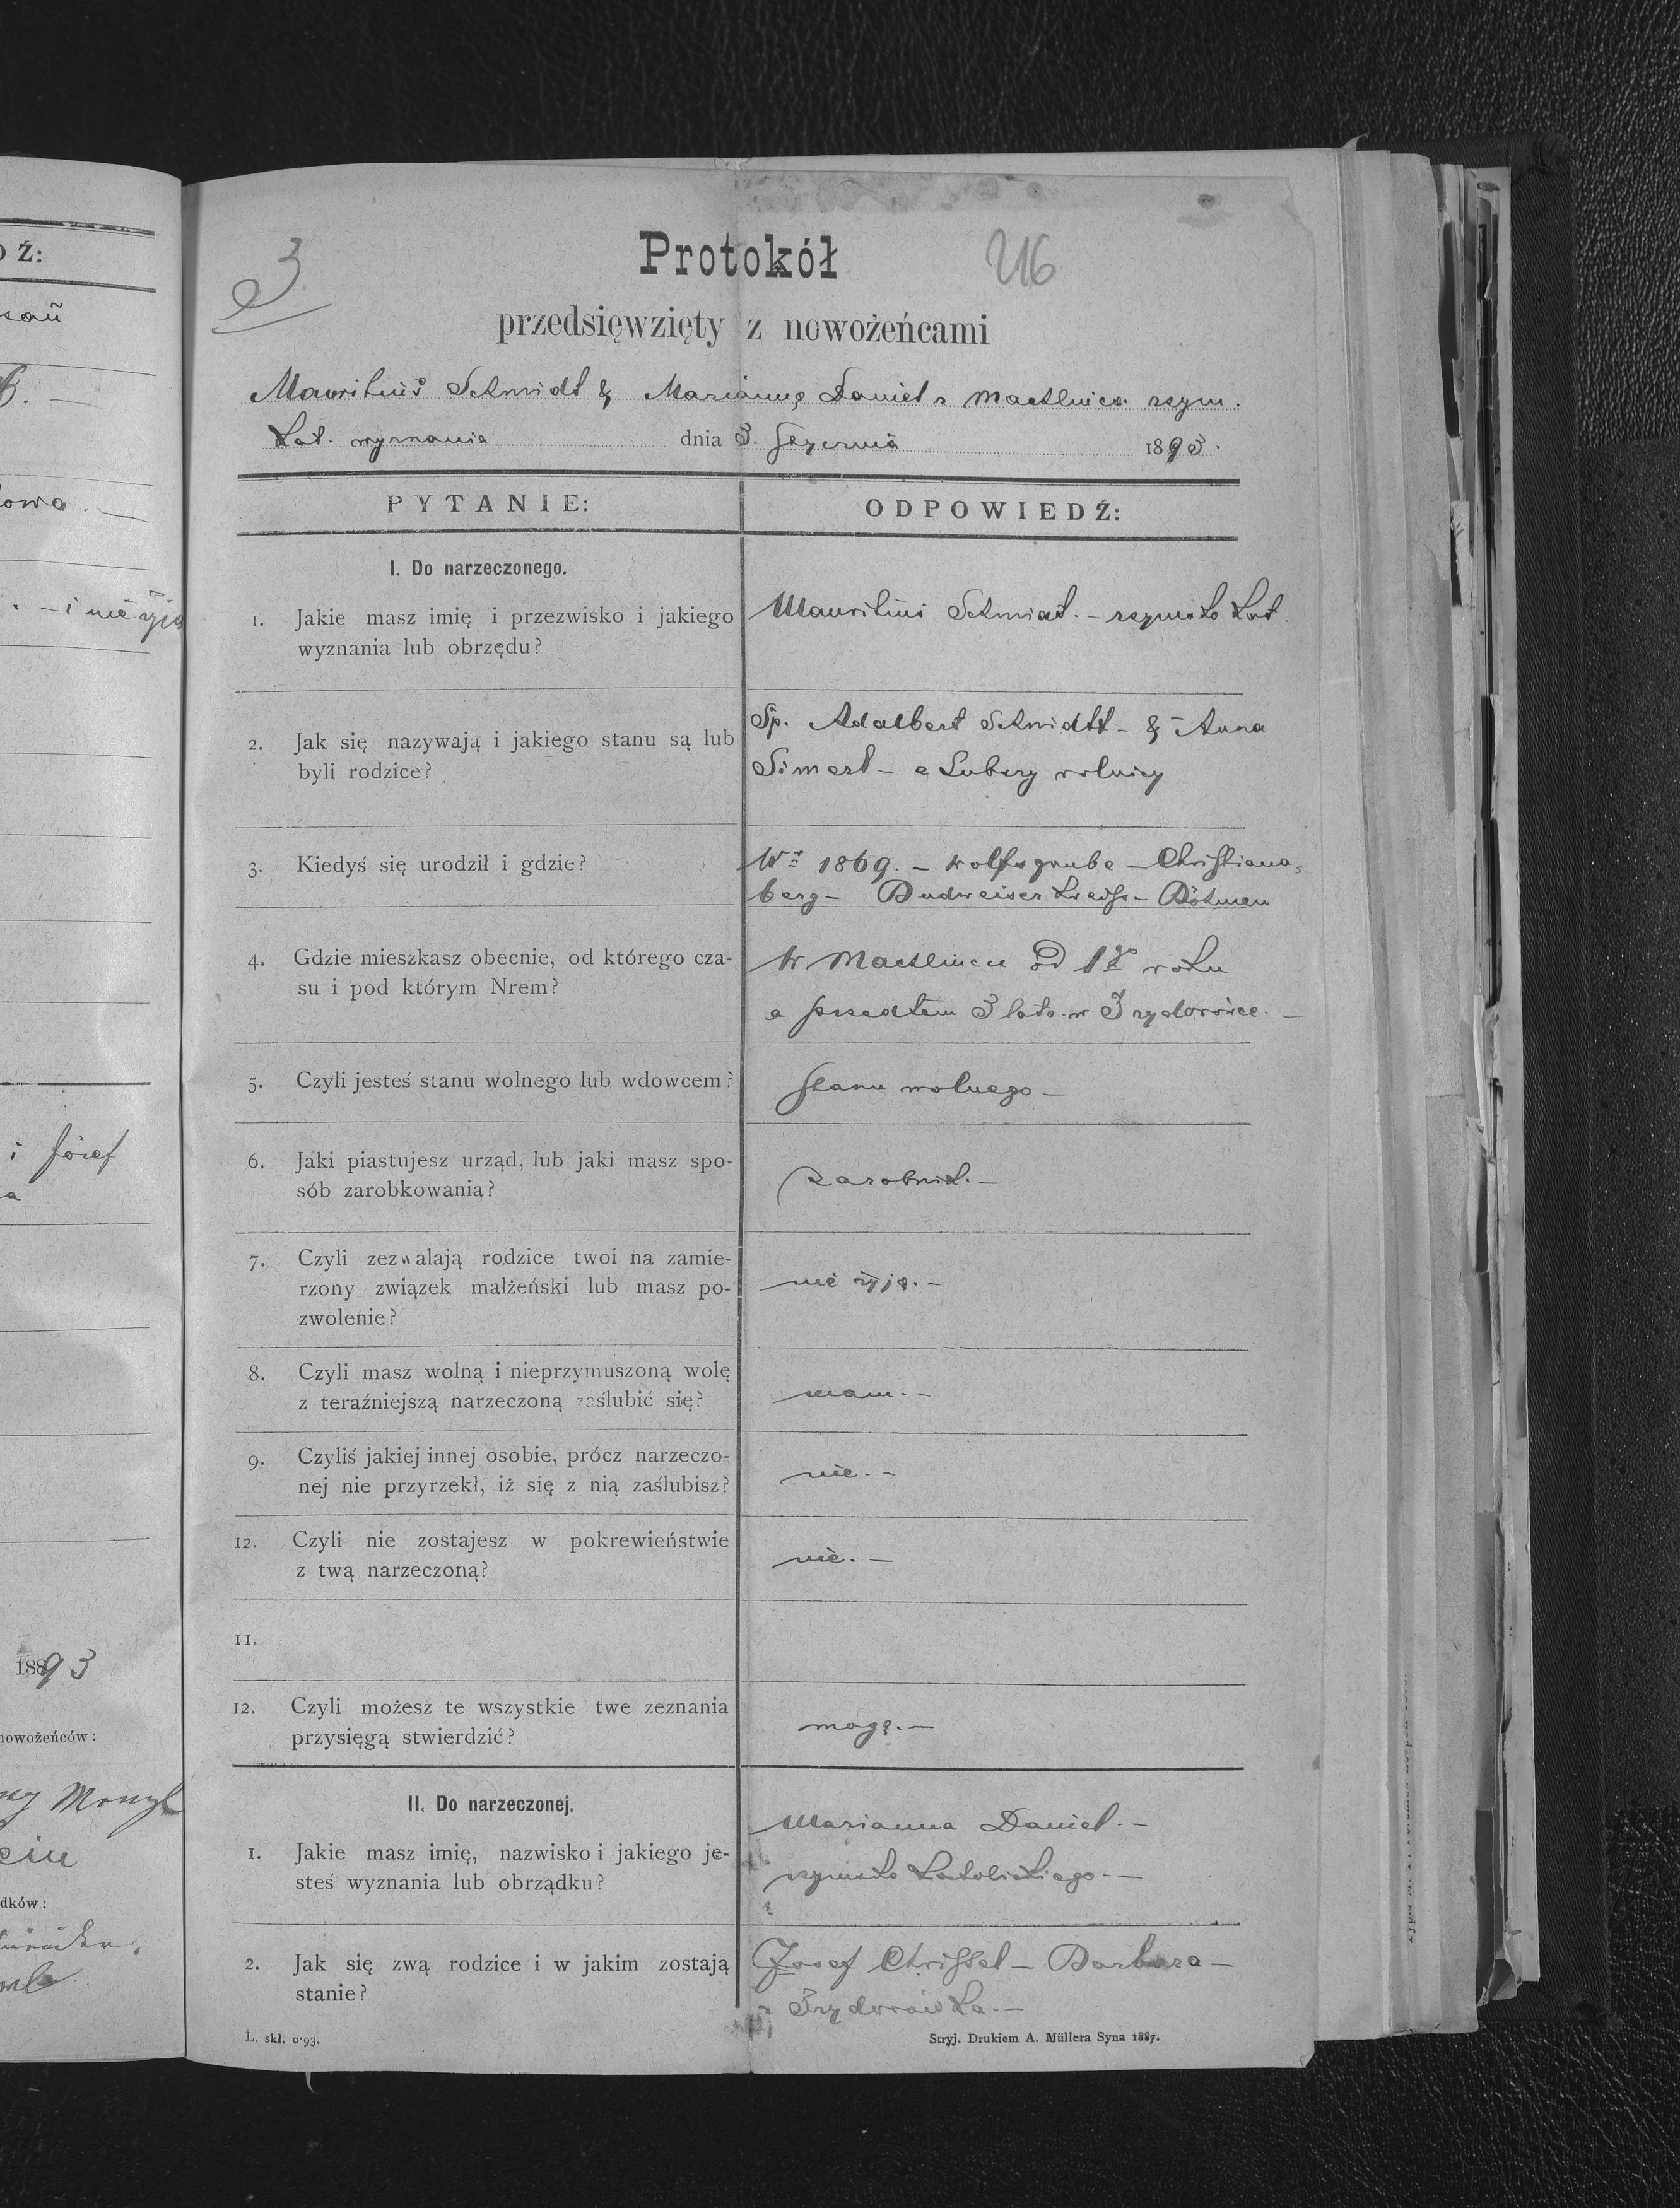 DŹ:
3
Protokół
216
przedsięwzięty z nowożeńcami
Mauritius Schmidt & Marianna Daniel z Machlińca rzym.
kat. wyznania dnia 3. Stycznia 1893.
PYTANIE:
ODPOWIEDŹ:
I. Do narzeczonego.
1. Jakie masz imię i przezwisko i jakiego
wyznania lub obrzędu?
Mauritius Schmidt. – rzymsko kat.
2. Jak się nazywają i jakiego stanu są lub
byli rodzice?
Sp. Adalbert Schmidtt – & Anna
Simert – z rolnicy
3. Kiedyś się urodził i gdzie?
W r 1869. – Wolfsgrube – Christiana-
berg – Budweiser Kreiss – Böhmen
4. Gdzie mieszkasz obecnie, od którego cza-
su i pod którym Nrem?
w Machlińcu od 1go roku
a przedtem 3 lata w Izydorówce. –
5. Czyli jesteś stanu wolnego lub wdowcem?
stanu wolnego –
6. Jaki piastujesz urząd, lub jaki masz spo-
sób zarobkowania?
zarobnik. –
7. Czyli zezwalają rodzice twoi na zamie-
rzony związek małżeński lub masz po-
zwolenie?
nie żyją. –
8. Czyli masz wolną i nieprzymuszoną wolę
z teraźniejszą narzeczoną zaślubić się?
mam. –
9. Czyliś jakiej innej osobie, prócz narzeczo-
nej nie przyrzekł, iż się z nią zaślubisz?
nie. –
12. Czyli nie zostajesz w pokrewieństwie
z twą narzeczoną?
nie. –
11.
12. Czyli możesz te wszystkie twe zeznania
przysięgą stwierdzić?
mogę. –
II. Do narzeczonej.
1. Jakie masz imię, nazwisko i jakiego je-
steś wyznania lub obrządku?
Marianna Daniel. –
rzymsko katolickiego –
2. Jak się zwą rodzice i w jakim zostają
stanie?
Josef Christel – Barbara –
z Izydorówka. –
L. skł. 0·93.
Stryj. Drukiem A. Müllera Syna 1887.
. – i nie żyją
i Józef
1893
nowożeńców:
dków: